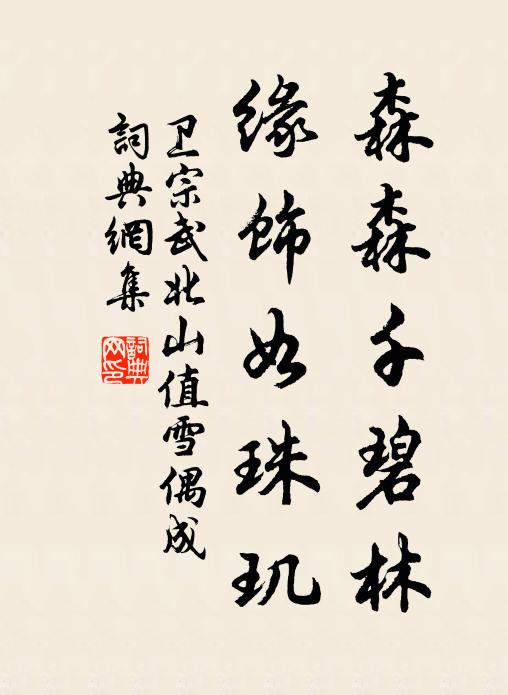 森森千碧林
缘饰如珠玑
卫宗武北山值雪偶成
詞典網集
詞典
网印